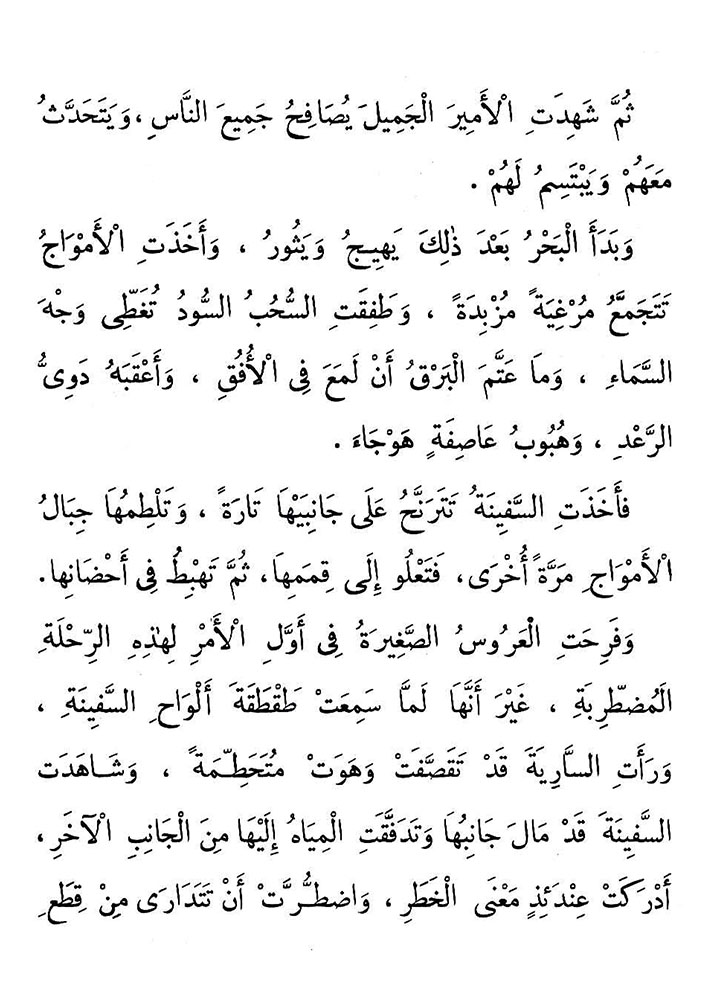 ثُمَّ شَهِدَتِ الْأَمِيرَ الْجَمِيلَ يُصَافِحُ جَمِيعَ النَّاسِ ، وَيَتَحَدَّثُ
مَعَهُمْ وَيَبْتَسِمُ لَهُمْ .
وَبَدَأَ الْبَحْرُ بَعْدَ ذٰلِكَ يَهِيجُ وَيَثُورُ ، وَأَخَذَتِ الْأَمْوَاجُ
تَتَجَمَّعُ مُرْغِيَةً مُزْبِدَةً ، وَطَفِقَتِ السُّحُبُ السُّودُ تُغَطِّى وَجْهَ
السَّمَاءِ ، وَمَا عَتَّمَ الْبَرْقُ أَنْ لَمَعَ فِى الْأُفُقِ ، وَأَعْقَبَهُ دَوِىُّ
الرَّعْدِ ، وَهُبُوبُ عَاصِفَةٍ هَوْجَاءَ .
فَأَخَذَتِ السَّفِينَةُ تَتَرَنَّحُ عَلَى جَانِبَيْهَا تَارَةً ، وَتَلْطِمُهَا جِبَالُ
الْأَمْوَاجِ مَرَّةً أُخْرَى ، فَتَعْلُو إِلَى قِمَمِهَا ، ثُمَّ تَهْبِطُ فِى أَحْضَانِها.
وَفَرِحَتِ الْعَرُوسُ الصَّغِيرَةُ فِى أَوَّلِ الْأَمْرِ لِهٰذِهِ الرِّحْلَةِ
الَمُضطّرِبَةِ ، غَيْرَ أَنَّهَا لَمَّا سَمِعَتْ طَقْطَقَةَ أَلْوَاحِ السَّفِينَةِ ،
وَرَأَتِ السَّارِيَةَ قَدْ تَقَصَّفَتْ وَهَوَتْ مُتَحَطِّمَةً ، وَشَاهَدَت
السَّفِينَةَ قَدْ مَالَ جَانِبُهَا وَتَدَفَّقَتِ الْمِيَاهُ إِلَيْهَا مِنَ الْجَانِبِ الْآخَرِ ،
أَدْرَكَتْ عِنْدَئِذٍ مَعْنَى الْخَطَرِ ، وَاضطُرَّتْ أَنْ تَتَدَارَى مِنْ قِطَعِ